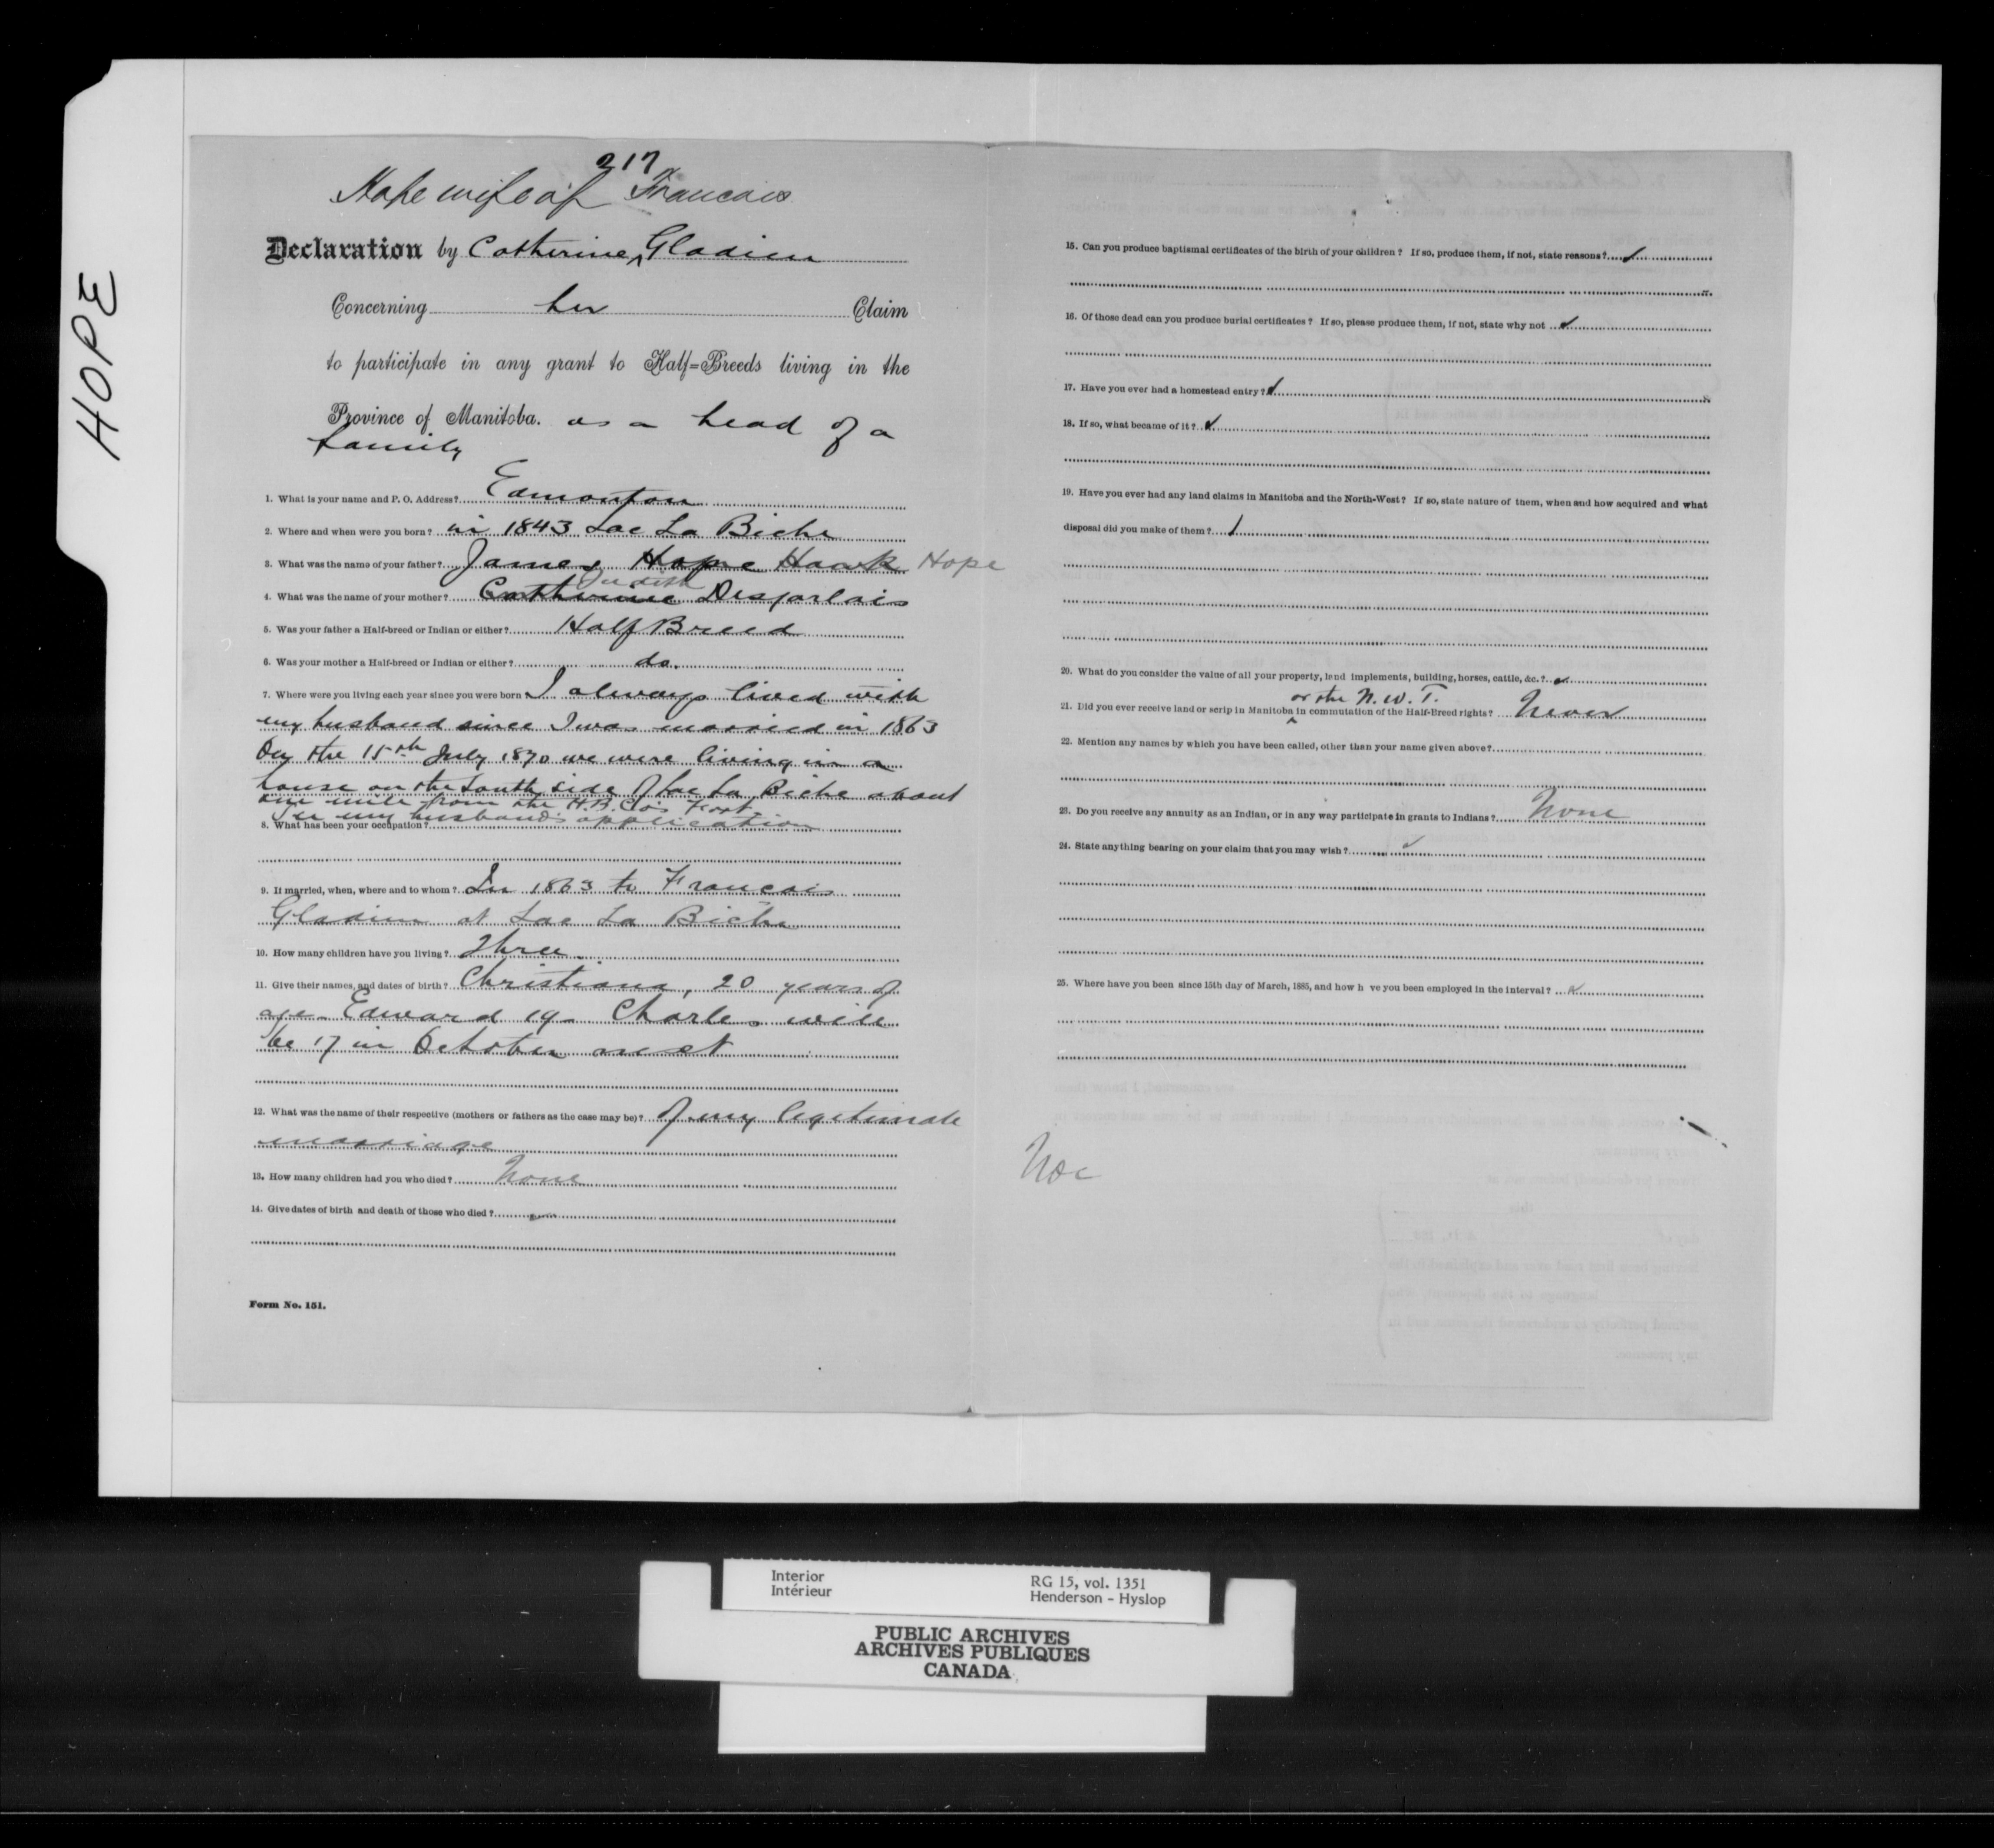 HOPE
217
Hope wife of Francois
Declaration by Catherine ^ Gladieu
Concerning her Claim
to participate in any grant to Half=Breeds living in the
Province of Manitoba. as a head of a
family
1. What is your name and P. O. Address? Edmonton
2. Where and when were you born? in 1843 Lac La Biche
3. What was the name of your father? James Hope Hawk Hope
Judith
4. What was the name of your mother? Catherine Desjarlais
5. Was your father a Half-breed or Indian or either? Half Breed
6. Was your mother a Half-breed or Indian or either? do.
7. Where were you living each year since you were born I always lived with
my husband since I was married in 1863
On the 15th July 1870 we were living in a
house on the South side of Lac La Biche about
one mile from the H.B.Co's Fort
In my husband's application
8. What has been your occupation?
9. If married, when, where and to whom? In 1863 to Francois
Gladieu at Lac La Biche
10. How many children have you living? Three.
11. Give their names, and dates of birth? Christiana, 20 years of
age - Edward 19 - Charles will
be 17 in October next
12. What was the name of their respective (mothers or fathers as the case may be)? Of my legitimate
marriage
13. How many children had you who died? None
14. Give dates of birth and death of those who died?
Form No. 151.
15. Can you produce baptismal certificates of the birth of your children? If so, produce them, if not, state reasons?
16. Of those dead can you produce burial certificates? If so, please produce them, if not, state why not
17. Have you ever had a homestead entry?
18. If so, what became of it?
19. Have you ever had any land claims in Manitoba and the North-West? If so, state nature of them, when and how acquired and what
disposal did you make of them?
20. What do you consider the value of all your property, land implements, building, horses, cattle, &c.?
or the N. W. T.
21. Did you ever receive land or scrip in Manitoba ^ in commutation of the Half-Breed rights? Never
22. Mention any names by which you have been called, other than your name given above?
23. Do you receive any annuity as an Indian, or in any way participate in grants to Indians? None
24. State anything bearing on your claim that you may wish?
25. Where have you been since 15th day of March, 1885, and how h ve you been employed in the interval?
Interior
Intérieur
RG 15, vol. 1351
Henderson - Hyslop
PUBLIC ARCHIVES
ARCHIVES PUBLIQUES
CANADA